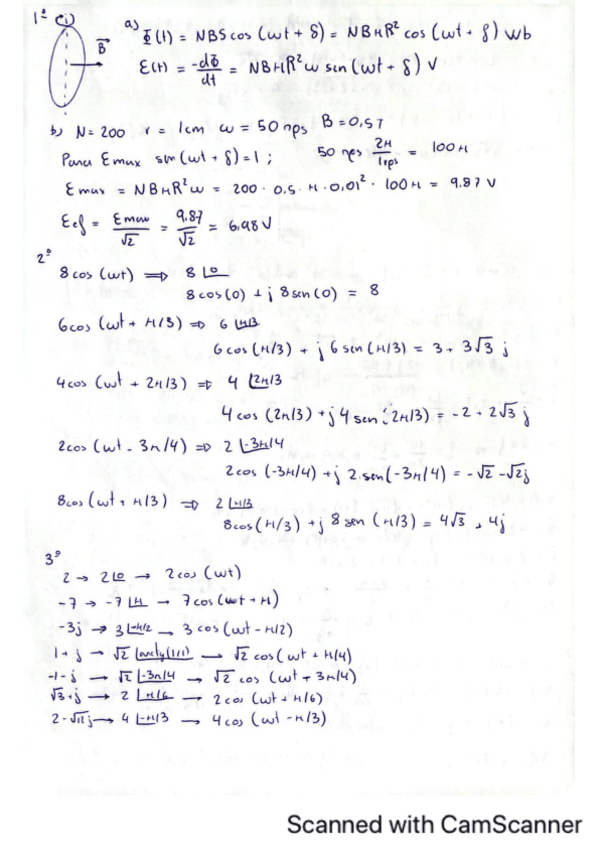 1º
a) Φ(t) = NBS cos (wt + δ) = NBπR² cos (wt + δ) Wb
B
E(t) = -dΦ/dt = NBπR² w sen (wt + δ) V
b) N = 200 r = 1cm w = 50 rps B = 0,5T
Para Emax sen (wt + δ) = 1 ; 50 rps 2π/1rps = 100π
Emax = NBπR² w = 200 · 0,5 · π · 0,01² · 100π = 9,87 V
Eef = Emax/√2 = 9,87/√2 = 6,98 V
2º
8 cos (wt) ⇒ 8 ∠0
8 cos(0) + j 8 sen(0) = 8
6 cos (wt + π/3) ⇒ 6 ∠π/3
6 cos (π/3) + j 6 sen (π/3) = 3 + 3√3 j
4 cos (wt + 2π/3) ⇒ 4 ∠2π/3
4 cos (2π/3) + j 4 sen (2π/3) = -2 + 2√3 j
2 cos (wt - 3π/4) ⇒ 2 ∠-3π/4
2 cos (-3π/4) + j 2 · sen (-3π/4) = -√2 - √2 j
8 cos (wt + π/3) ⇒ 2 ∠π/3
8 cos (π/3) + j 8 sen (π/3) = 4√3 + 4j
3º
2 → 2 ∠0 → 2 cos (wt)
-7 → -7 ∠π → 7 cos (wt + π)
-3j → 3 ∠-π/2 → 3 cos (wt - π/2)
1 + j → √2 ∠arctg(1/1) → √2 cos (wt + π/4)
-1 - j → √2 ∠-3π/4 → √2 cos (wt + 3π/4)
√3 + j → 2 ∠π/6 → 2 cos (wt + π/6)
2 - √12 j → 4 ∠-π/3 → 4 cos (wt - π/3)
Scanned with CamScanner